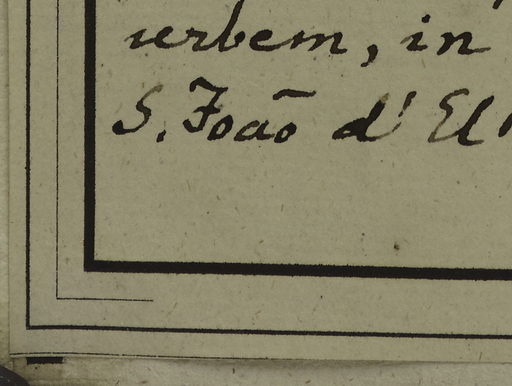 urbem, in
S. João d' El